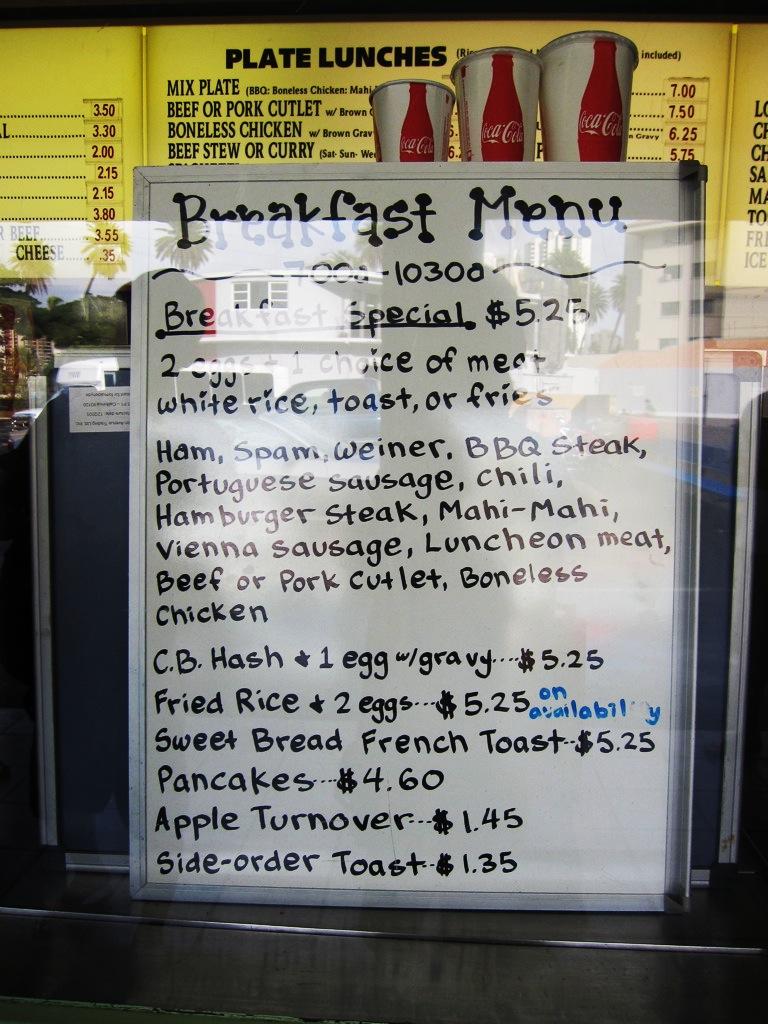 PLATE LUNCHES
included)
MIX PLATE (BBQ: Boneless Chicken: Mahi
BEEF OR PORK CUTLET w/ Brown
BONELESS CHICKEN w/ Brown Grav
BEEF STEW OR CURRY (Sat- Sun- We
7.00
7.50
Gravy 6.25
5.75
3.50
3.30
2.00
2.15
2.15
3.80
BEEF 3.55
CHEESE .35
Coca-Cola
Coca-Cola
Coca-Cola
Breakfast Menu
700a-1030a
Breakfast Special $5.25
2 eggs + 1 choice of meat
white rice, toast, or fries
Ham, Spam, Weiner, BBQ Steak,
Portuguese sausage, chili,
Hamburger Steak, Mahi-Mahi,
Vienna sausage, Luncheon meat,
Beef or Pork Cutlet, Boneless
Chicken
C.B. Hash + 1 egg w/gravy---$5.25
Fried Rice + 2 eggs---$5.25 on availability
Sweet Bread French Toast--$5.25
Pancakes---$4.60
Apple Turnover---$1.45
Side-order Toast--$1.35